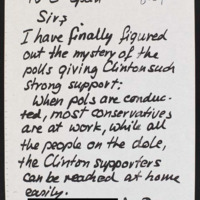 Sir:
I have finally figured
out the mystery of the
polls giving Clinton such
strong support:
When pols are conduc-
ted, most conservatives
are at work, while all
the people on the dole,
the Clinton supporters
can be reached at home
easily.